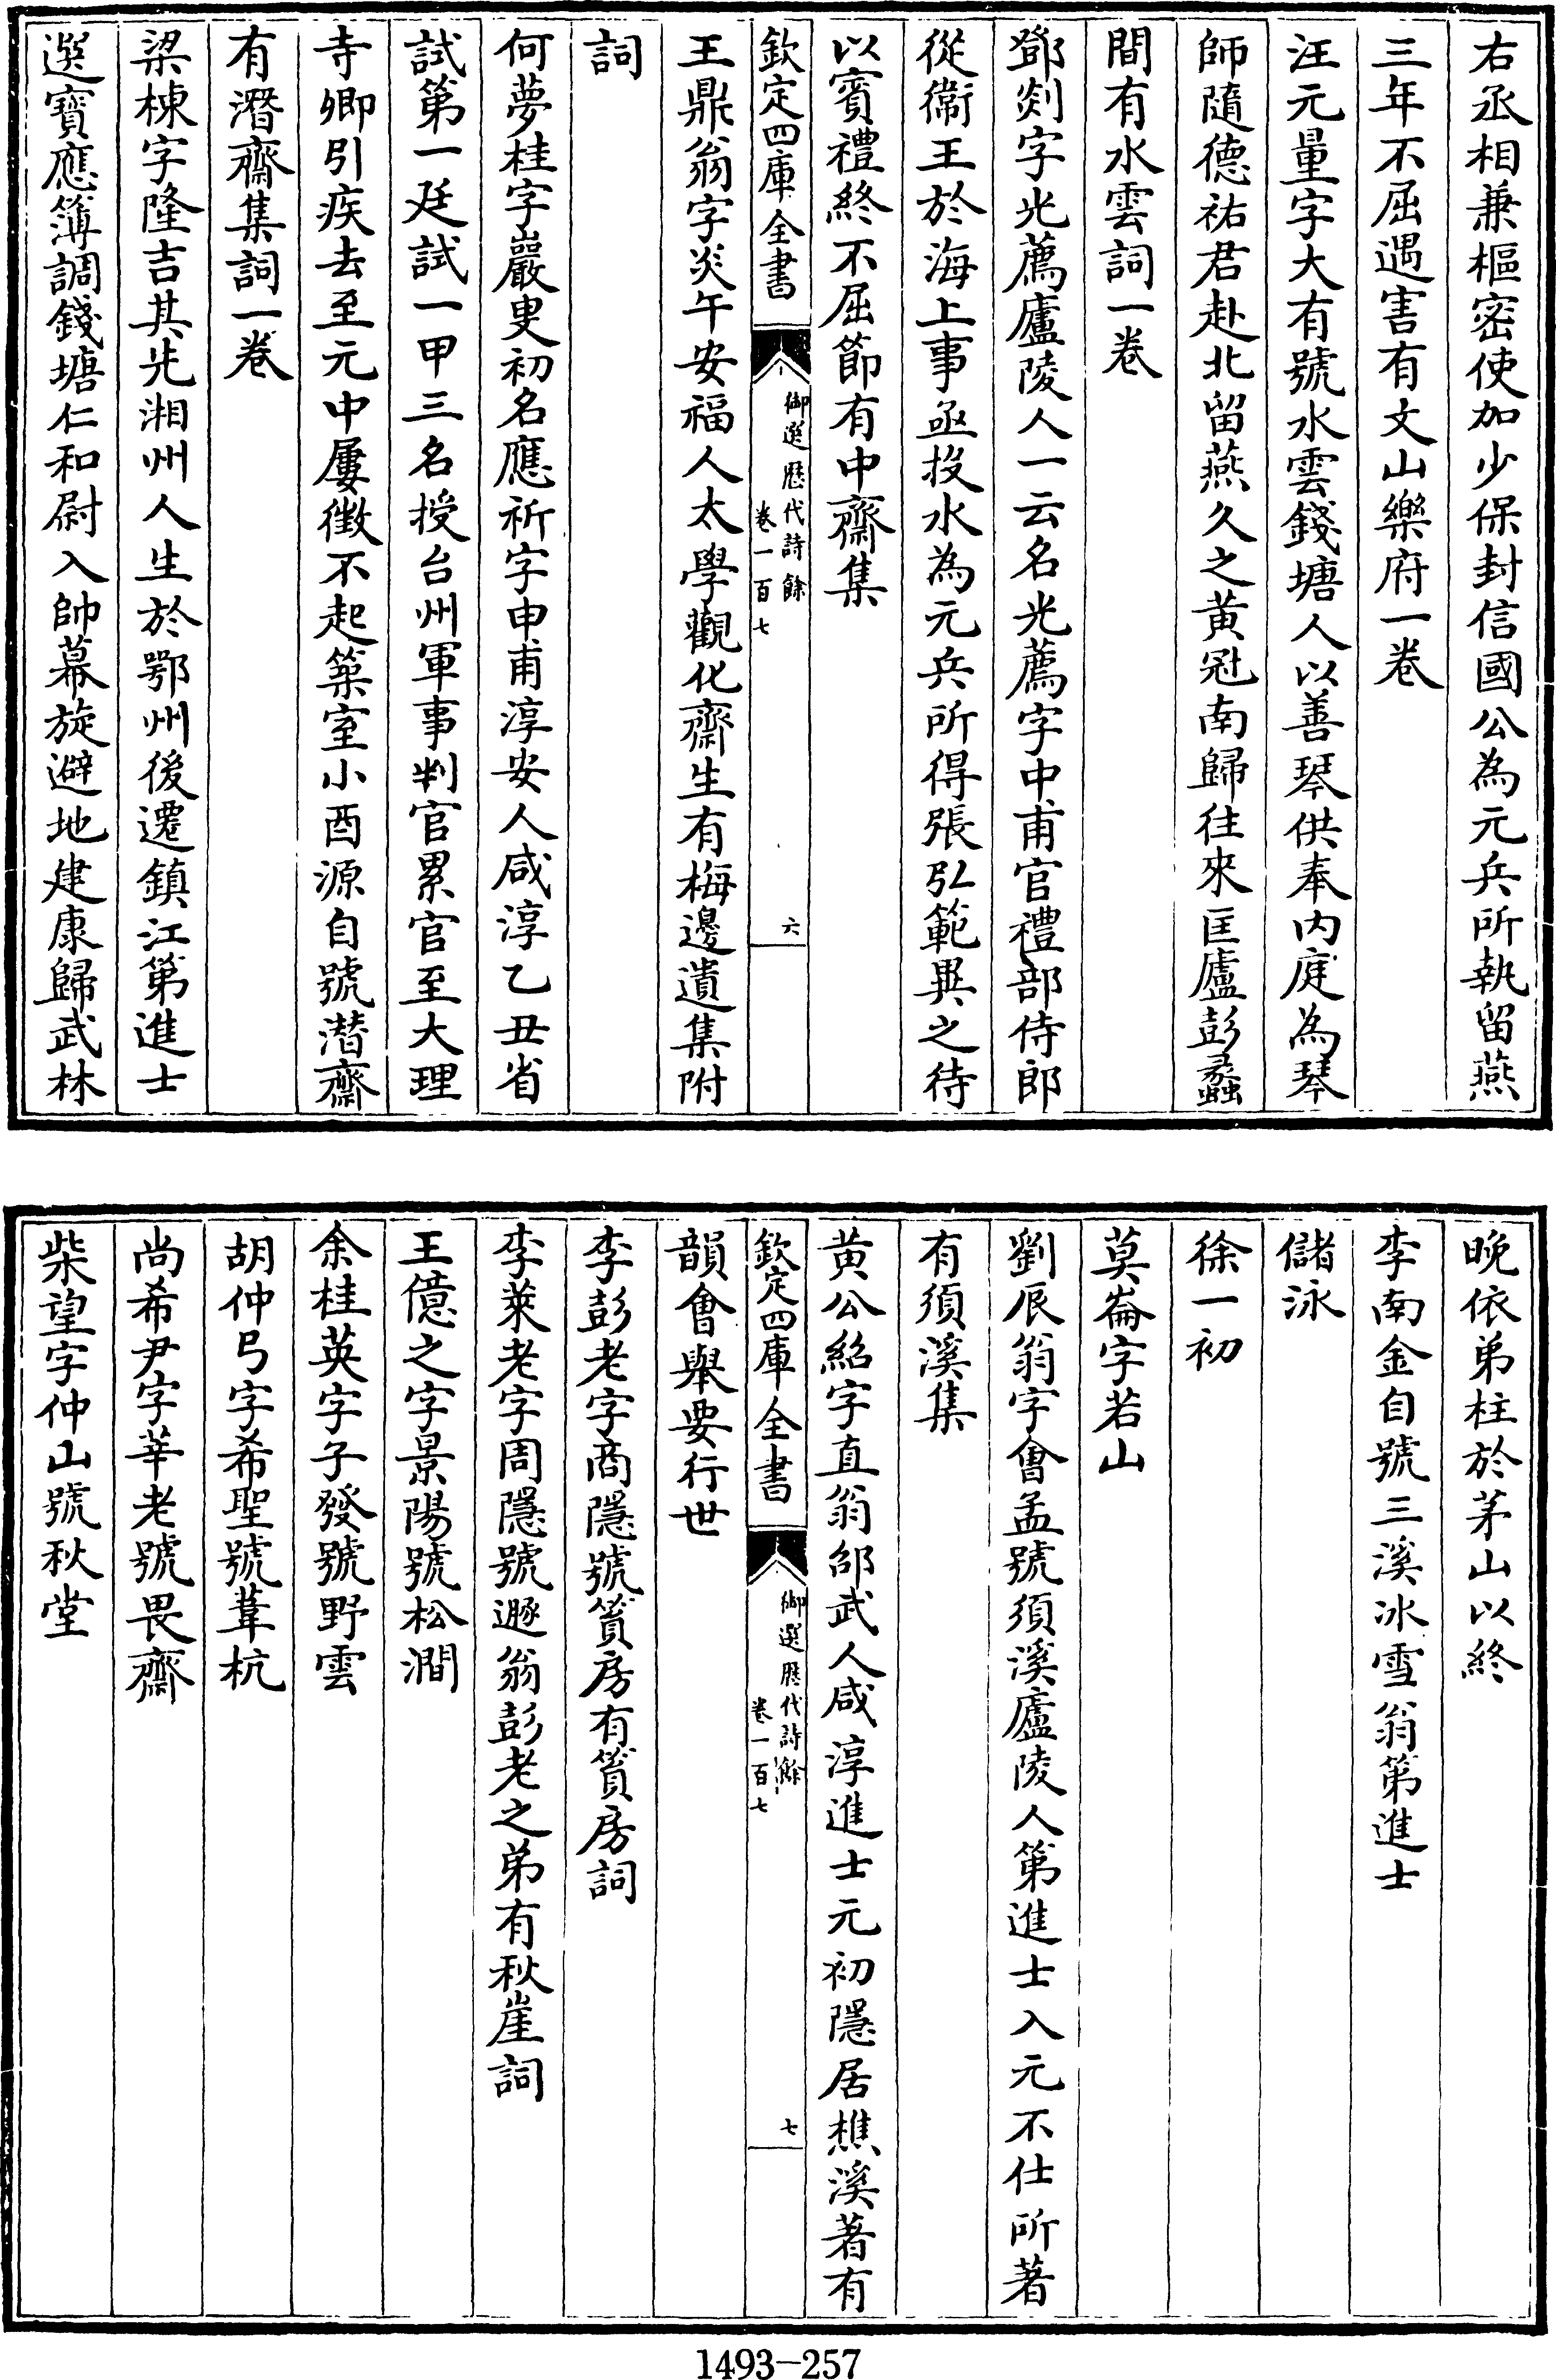 右丞相兼樞密使加少保封信國公為元兵所執留燕
三年不屈遇害有文山樂府一卷
汪元量字大有號水雲錢塘人以善琴供奉内庭為琴
師隨德祐君赴北留燕久之黄冠南歸往來匡廬彭蠡
間有水雲詞一卷
鄧剡字光薦廬陵人一云名光薦字中甫官禮部侍郎
從衛王於海上事亟投水為元兵所得張弘範異之待
以賓禮終不屈節有中齋集
欽定四庫全書
御選歷代詩餘
卷一百七
六
王鼎翁字炎午安福人太學觀化齋生有梅邊遺集附
詞
何夢桂字巖叟初名應祈字申甫淳安人咸淳乙丑省
試第一廷試一甲三名授台州軍事判官累官至大理
寺卿引疾去至元中屢徵不起築室小酉源自號潛齋
有潛齋集詞一卷
梁棟字隆吉其先湘州人生於鄂州後遷鎮江第進士
選寶應簿調錢塘仁和尉入帥幕旋避地建康歸武林
晚依弟柱於茅山以終
李南金自號三溪冰雪翁第進士
儲泳
徐一初
莫崙字若山
劉辰翁字會孟號須溪廬陵人第進士入元不仕所著
有須溪集
黄公紹字直翁邵武人咸淳進士元初隱居樵溪著有
欽定四庫全書
御選歷代詩餘
卷一百七
七
韻會舉要行世
李彭老字商隱號篔房有篔房詞
李萊老字周隱號遯翁彭老之弟有秋崖詞
王億之字景陽號松澗
余桂英字子發號野雲
胡仲弓字希聖號葦杭
尚希尹字莘老號畏齋
柴望字仲山號秋堂
1493-257